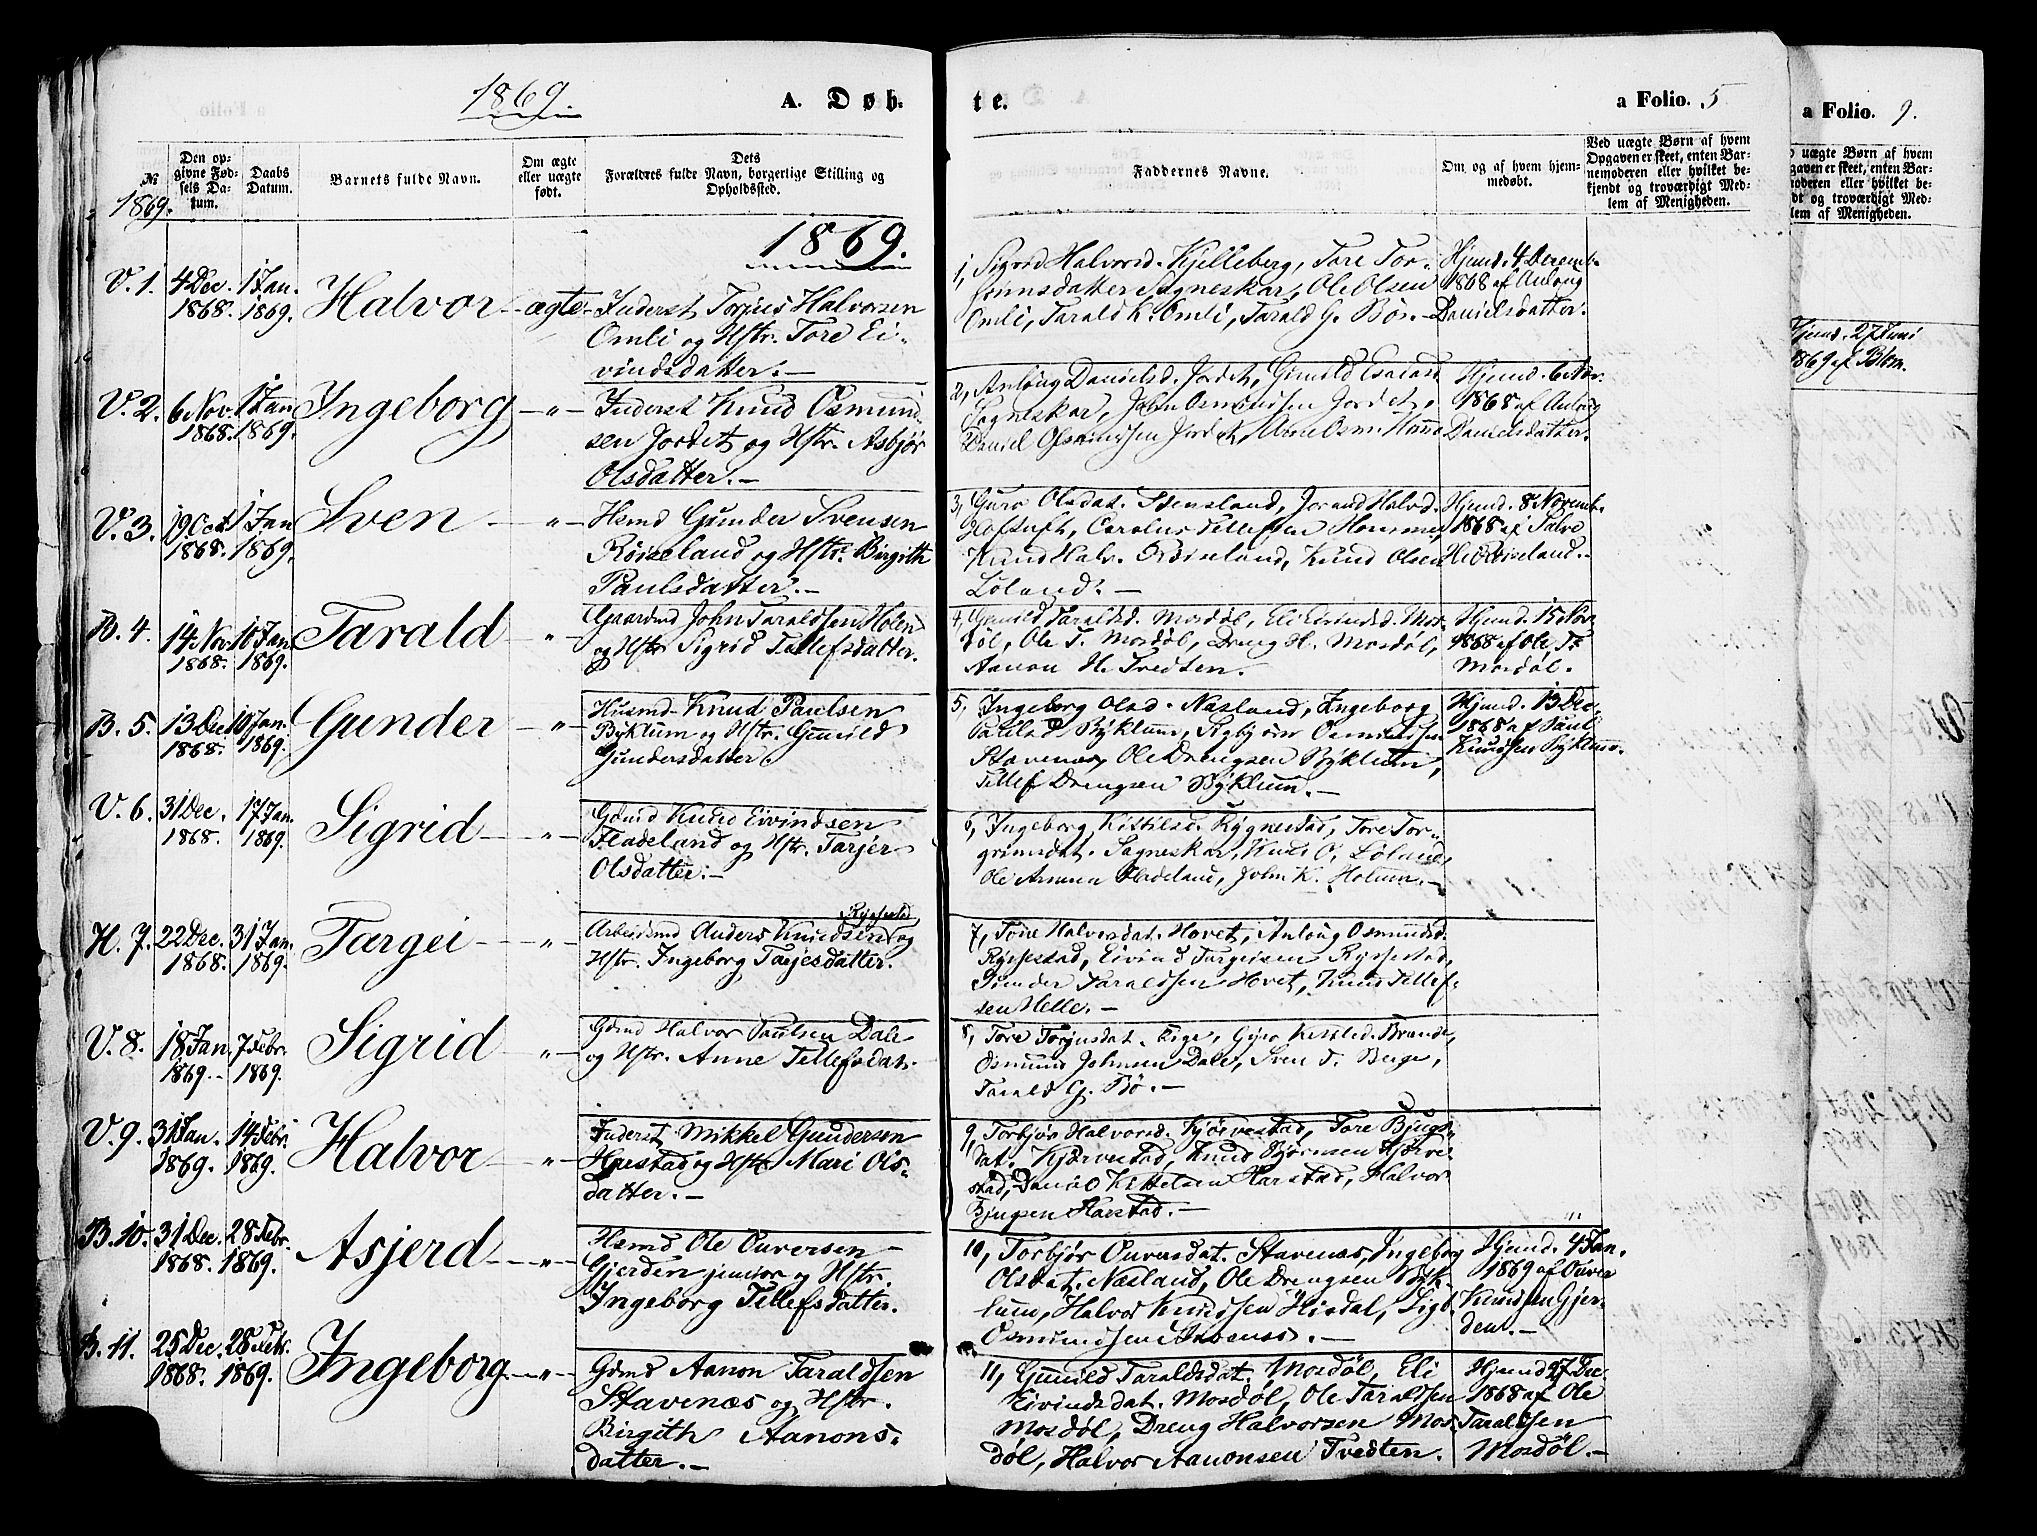 1869.
A. Døb-
te.
a Folio. 5
a Folio. 9.
№
Den op-
givne Fød-
sels Da-
tum.
Daabs
Datum.
Barnets fulde Navn.
Om ægte
eller uægte
født.
Dets
Forældres fulde Navn, borgerlige Stilling og
Opholdssted.
Faddernes Navne.
Om og af hvem hjem-
medøbt.
Ved uægte Børn af hvem
Opgaven er skeet, enten Bar-
nemoderen eller hvilket be-
kjendt og troværdigt Med-
lem af Menigheden.
1869.
1869.
V. 1.
4 Dec.
1868.
1 Jan.
1869.
Halvor
ægte
Inderst Torjus Halvorsen
Omli og Hstr. Tore Ei-
vindsdatter.-
1, Sigrid Halvorsd. Kjelleberg, Tore Tor-
grimsdatter Sagneskar, Ole Olsen
Omli, Tarald K. Omli, Tarald G. Bø.-
Hjemd. 4 Decemb.
1868 af Anlaug
Danielsdatter.
V. 2.
6 Nov.
1868.
1 Jan
1869.
Ingeborg
-"-
Inderst Knud Osmund-
sen Jordet og Hstr. Asbjør
Olsdatter.-
2, Anlaug Danielsd. Jordet, Gunild
Sagneskar, John Osmundsen Jordet,
Daniel Osmundsen Jordet,
Hjemd. 6 Nov.
1868 af Anlaug
Danielsdatter.
V. 3.
19 Oct
1868.
1 Jan
1869.
Sven
-"-
Hsmd Gunder Svensen
Røiseland og Hstr. Birgith
Paulsdatter.-
3, Guro Olsdat. Stensland, Jorand Halvd.
Carolus Tellefsen
Knud Halv. Røiseland, Knud Olsen
Løland.-
Hjemd. 8 Novemb.
1868 af Salve
H. Røiseland.-
B. 4.
14 Nov.
1868.
10 Jan
1869.
Tarald
-"-
Gaardmd John Taraldsen Holen
og Hstr Sigrid Tellefsdatter.
4, Gunild Taraldsd. Mosdøl, Eli Eivindsd. Mos-
døl, Ole T. Mosdøl, Dreng H. Mosdøl,
Aanon H. Tvedten.
Hjemd. 15 Nov.
1868 af Ole T.
Mosdøl.
B. 5.
13 Dec
1868.
10 Jan.
1869.
Gunder
-"-
Husmd Knud Paulsen
Byklum og Hstr. Gunild
Gundersdatter.
5, Ingeborg Olsd. Nasland, Ingeborg
Paulsd Byklum, Sigbjørn Osmundsen
Stavenæs, Ole Drengsen Byklum,
Tellef Drengsen Byklum.-
Hjemd. 13 Dec.
1868 af Paul
Knudsen Byklum.
V. 6.
31 Dec.
1868.
17 Jan.
1869.
Sigrid
-"-
Gdmd Knud Eivindsen
Fladeland og Hstr. Tarjer
Olsdatter.-
6, Ingeborg Kittilsd. Rygnestad, Tore Tor-
grimsdat. Sagneskar, Knud O. Løland,
Ole Fladeland, John K. Holum.-
H. 7.
22 Dec.
1868.
31 Jan.
1869.
Targei
-"-
Arbeidsmd Anders Knudsen og
Rysstad
Hstr. Ingeborg Tarjesdatter.
7, Tone Halvorsdat. Hovet, Anlaug Osmundsd.
Rysstad, Eivind Targeisen Rysstad,
Gunder Taraldsen Hovet, Knud Tellef-
sen Helle.-
V. 8.
18 Jan.
1869.-
7 Febr.
1869.
Sigrid
-"-
Gdmd Halvor Paulsen Dale
og Hstr. Anne Tellefsdat.
8, Tore Torjusdat. Eige, Gyro Kittilsd. Brandt,
Osmund Johnsen Dale, Sven T. Berge,
Tarald G. Bø.-
V. 9.
31 Jan.
1869.
14 Febr.
1869.
Halvor
-"-
Inderst Mikkel Gundersen
Harstad og Hstr. Mari Ols-
datter.-
9, Torbjør Halvorsd. Kjørvestad, Tore Bjugs-
dat. Kjørvestad, Knud Bjørnsen Kjørve-
stad, Daniel Kittelsen Harstad, Halvor
Bjugsen Harstad.-
B. 10.
31 Dec.
1868.
28 Febr.
1869.
Asjerd
-"-
Hsmd Ole Ouversen
Gjerden junior og Hstr.
Ingeborg Tellefsdatter.
10, Torbjør Ouversdat. Stavenæs, Ingeborg
Olsdat. Næsland, Ole Drengsen Byk-
lum, Halvor Knudsen Hisdal, Sigb.
Osmundsen Stavenæs.-
Hjemd. 4 Jan.
1869 af Ouver
Knudsen Gjer-
den.-
B. 11.
25 Dec.
1868.
28 Febr.
1869.
Ingeborg
-"-
Gdmd Aanon Taraldsen
Stavenæs og Hstr.
Birgith Aanons-
datter.-
11, Gunild Taraldsdat. Mosdøl, Eli
Eivindsdat. Mosdøl, Ole Taraldsen
Mosdøl, Dreng Halvorsen Mos-
døl, Halvor Aanonsen Tvedten.
Hjemd 27 Dec.
1868 af Ole
Taraldsen
Mosdøl.-
uægte Børn af hvem
gaven er skeet, enten Bar-
moderen eller hvilket be-
dt og troværdigt Med-
lem af Menigheden.
Hjemd. 27 Juni
1869 af Blom.